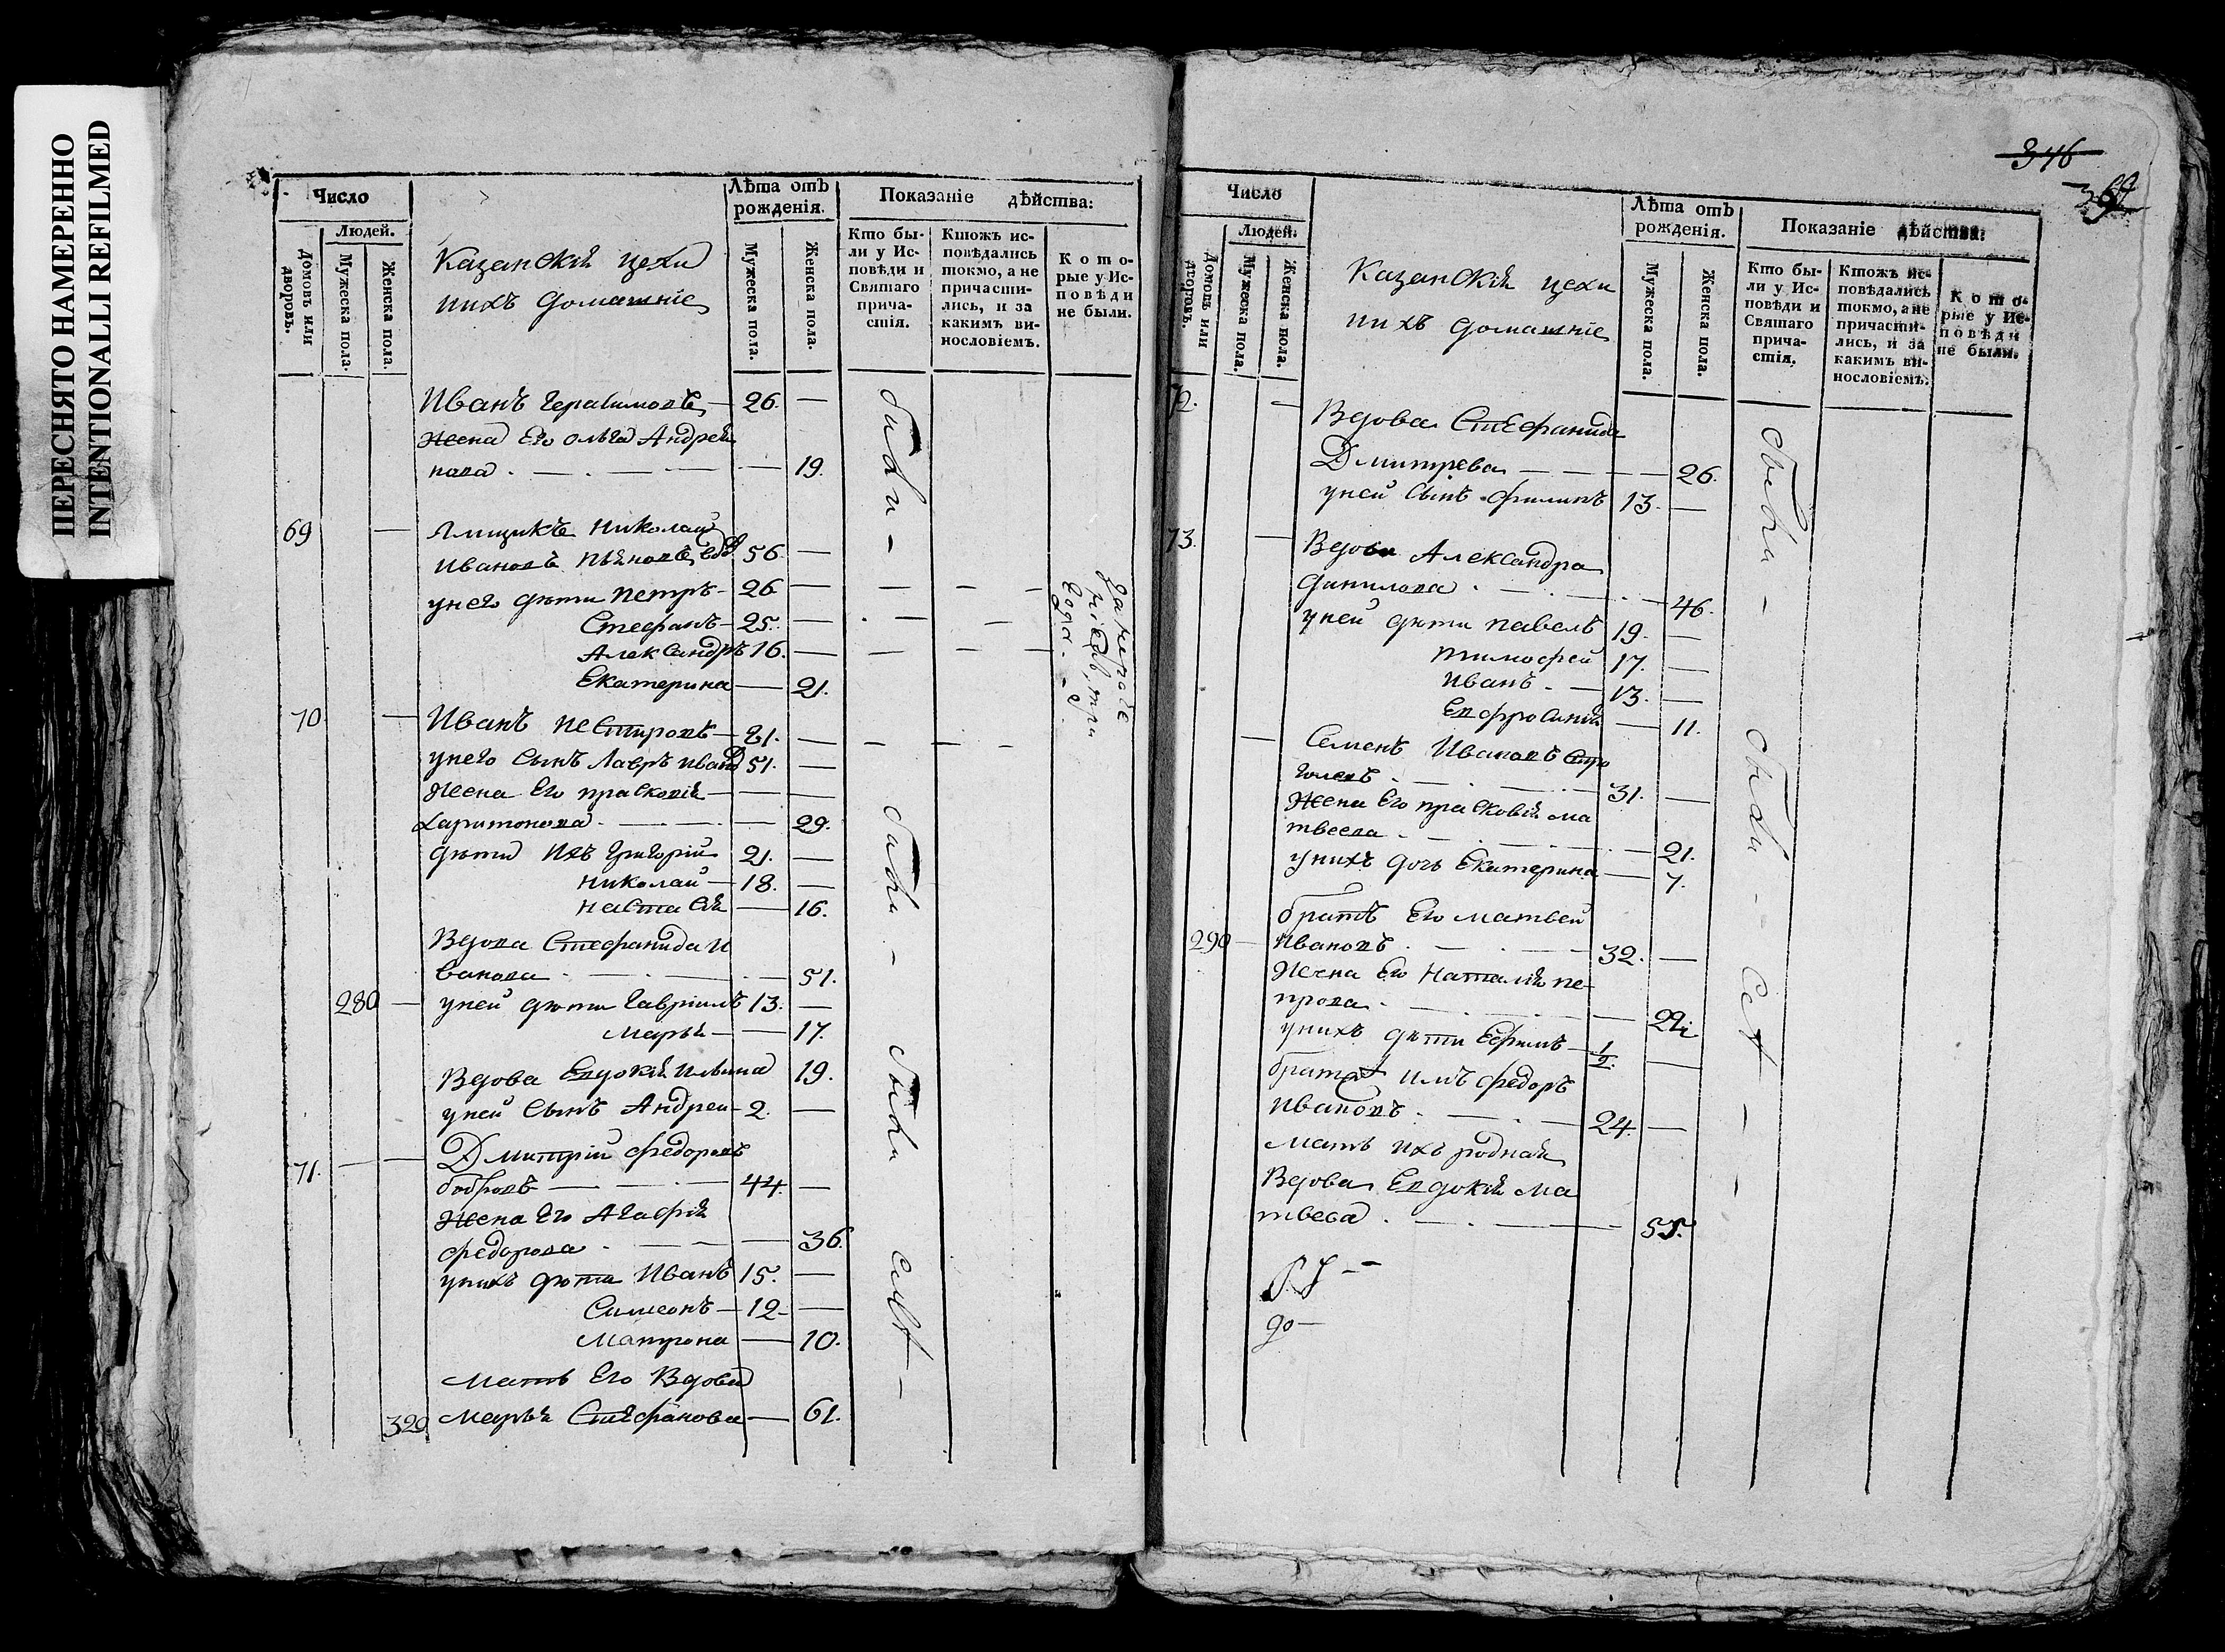 ПЕРЕСНЯТО НАМЕРЕННО
INTENTIONALLI REFILMED
Число
Людей.
Домовъ или дворовъ.
Мужеска пола.
Женска пола.
Казанскія цехи
ихъ домашніе
Лѣта отъ рожденія.
Мужеска пола.
Женска пола.
Показаніе дѣйства:
Кто были у Исповѣди и Святаго причастія.
Ктожъ исповѣдались токмо, а не причастились, и за какимъ винословіемъ.
Которые у Исповѣди не были.
Иванъ Герасимовъ — 26. —
Жена Его Ольга Андрея
нова — 19.
69 — Ямщикъ Николай
Ивановъ вдов. 56 —
унего дѣти Петръ — 26 —
Стефанъ — 25. —
Александръ 16. —
Екатерина — 21.
70. — Иванъ Нестеровъ — 81. —
унего сынъ Лавръ Иванов 51. —
Жена Его Прасковія —
Харитонова — 29.
дѣти Ихъ Григорій 21. —
Николай — 18. —
Настасія — 16.
Вдова Стефанида И
ванова — 51.
280 — уней дѣти Гавріилъ 13. —
Марья — 17.
Вдова Евдокія Ильина 19.
уней Сынъ Андрей — 2. —
71. — Дмитрій Федоровъ
Бобровъ — 44. —
Жена Его Агафія
Федорова — 36.
унихъ дѣти Иванъ 15. —
Симеонъ — 12 —
Матрона — 10.
Мать Его Вдова
329 Марья Стефанова — 61.
были —
были —
были
346
369
Число
Людей.
Домовъ или дворовъ.
Мужеска пола.
Женска пола.
Казанскія цехи
ихъ домашніе
Лѣта отъ рожденія.
Мужеска пола.
Женска пола.
Показаніе дѣйства:
Кто были у Исповѣди и Святаго причастія.
Ктожъ исповѣдались токмо, а не причастились, и за какимъ винословіемъ.
Которые у Исповѣди не были.
72. — Вдова Стефанида
Дмитрева — 26.
уней Сынъ Филипъ 13. —
73. — Вдова Александра
Данилова — 46.
уней дѣти Павелъ 19. —
Тимофей 17. —
Иванъ — 13. —
Евфросинія — 11.
— Семенъ Ивановъ
31. —
Жена Его Прасковія Ма
твеева — 21.
унихъ дочь Екатерина — 7.
братъ Его Матвей
290 — Ивановъ — 32. —
Жена Его Наталія Пе-
трова — 22
унихъ дѣти Ефимъ — 1/2. —
братъ имъ Федоръ
Ивановъ — 24. —
Мать ихъ родная
Вдова Евдокія Ма
твева — 55.
были —
были —